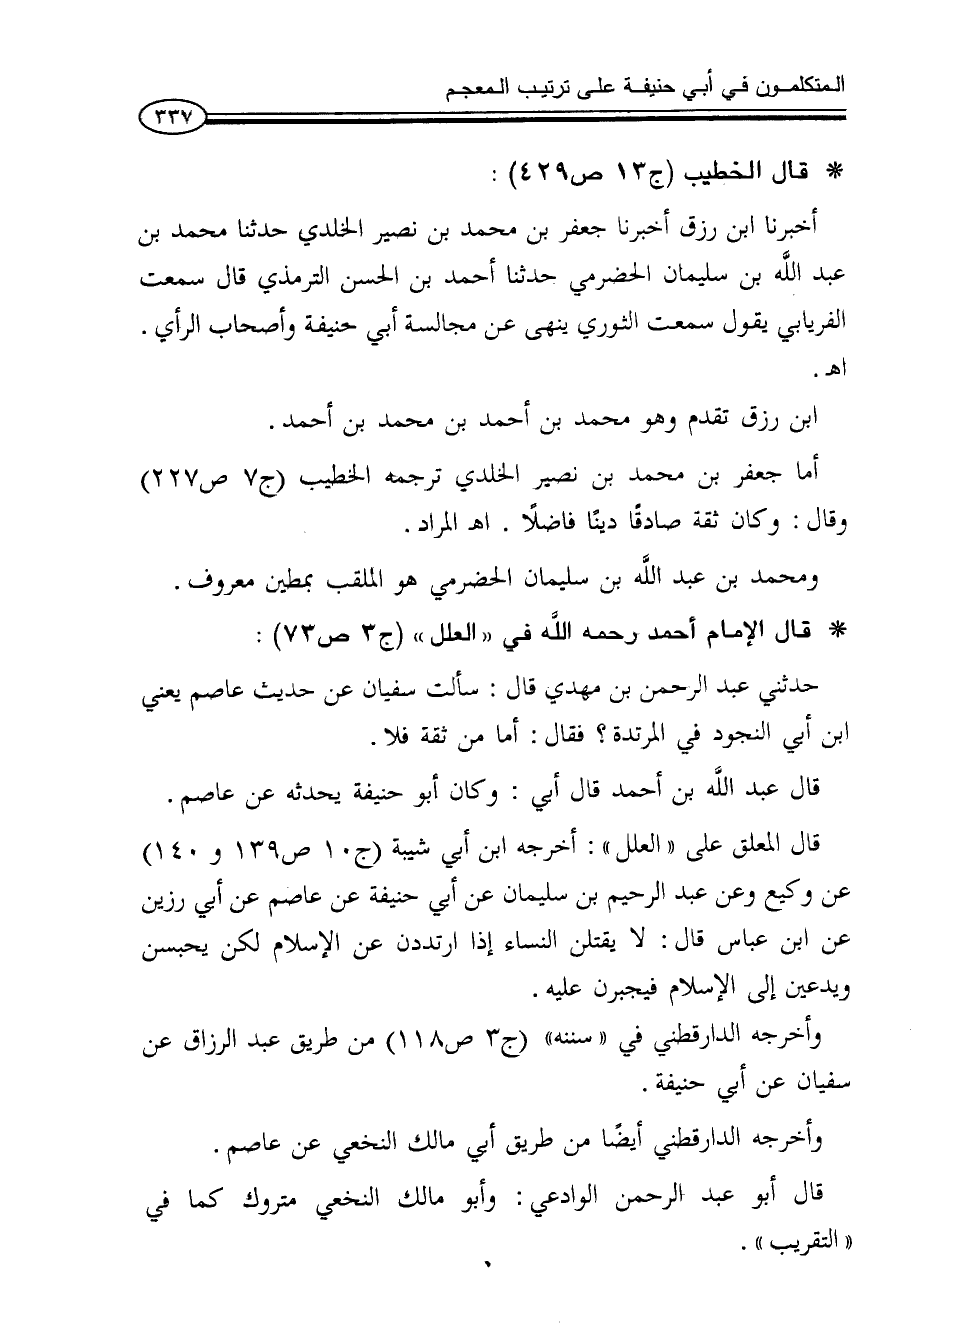 المتكلمون في أبي حنيفة على ترتيب المعجم
٣٣٧
* قال الخطيب (ج١٣ ص٤٢٩) :
أخبرنا ابن رزق أخبرنا جعفر بن محمد بن نصير الخلدي حدثنا محمد بن
عبد اللَّه بن سليمان الحضرمي حدثنا أحمد بن الحسن الترمذي قال سمعت
الفريابي يقول سمعت الثوري ينهى عن مجالسة أبي حنيفة وأصحاب الرأي .
اهـ .
ابن رزق تقدم وهو محمد بن أحمد بن محمد بن أحمد .
أما جعفر بن محمد بن نصير الخلدي ترجمه الخطيب (ج٧ ص٢٢٧)
وقال : وكان ثقة صادقًا دينًا فاضلًا . اهـ المراد .
ومحمد بن عبد اللَّه بن سليمان الحضرمي هو الملقب بمطين معروف .
* قال الإمام أحمد رحمه اللَّه في «العلل» (ج٣ ص٧٣) :
حدثني عبد الرحمن بن مهدي قال : سألت سفيان عن حديث عاصم يعني
ابن أبي النجود في المرتدة ؟ فقال : أما من ثقة فلا .
قال عبد اللَّه بن أحمد قال أبي : وكان أبو حنيفة يحدثه عن عاصم .
قال المعلق على «العلل» : أخرجه ابن أبي شيبة (ج١٠ ص١٣٩ و ١٤٠)
عن وكيع وعن عبد الرحيم بن سليمان عن أبي حنيفة عن عاصم عن أبي رزين
عن ابن عباس قال : لا يقتلن النساء إذا ارتددن عن الإسلام لكن يحبسن
ويدعين إلى الإسلام فيجبرن عليه .
وأخرجه الدارقطني في «سننه» (ج٣ ص١١٨) من طريق عبد الرزاق عن
سفيان عن أبي حنيفة .
وأخرجه الدارقطني أيضًا من طريق أبي مالك النخعي عن عاصم .
قال أبو عبد الرحمن الوادعي : وأبو مالك النخعي متروك كما في
«التقريب» .